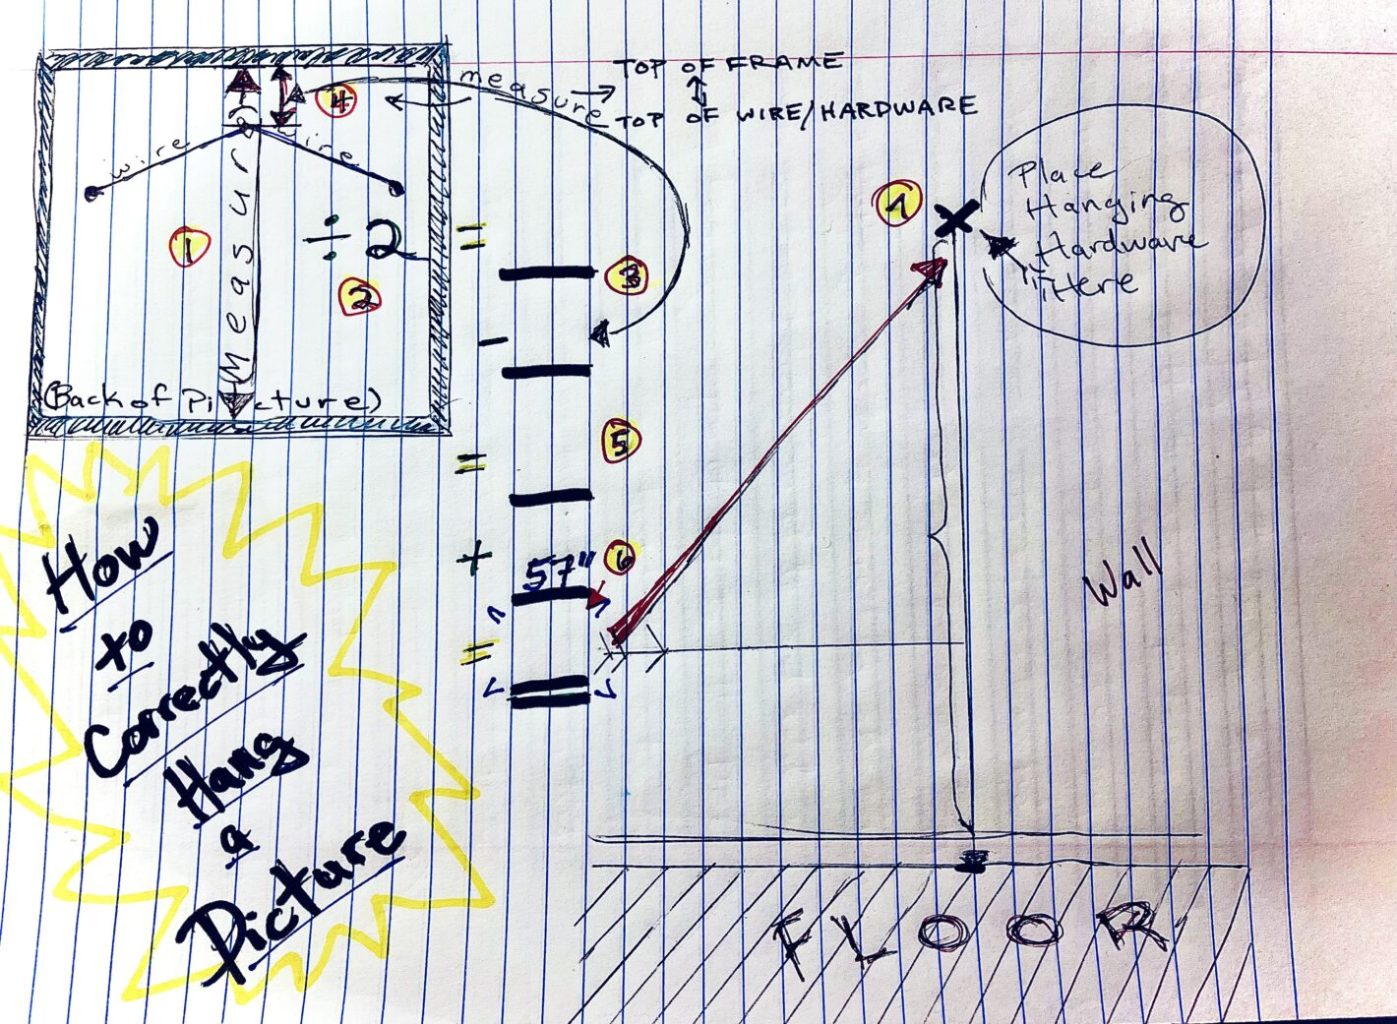 measure
TOP OF FRAME
TOP OF WIRE/HARDWARE
4
wire
wire
Measure
1
÷2 =
2
(Back of Picture)
3
-
=
5
+
57"
6
=
7
Place
Hanging
Hardware
Here
Wall
FLOOR
How
to
Correctly
Hang
a
Picture